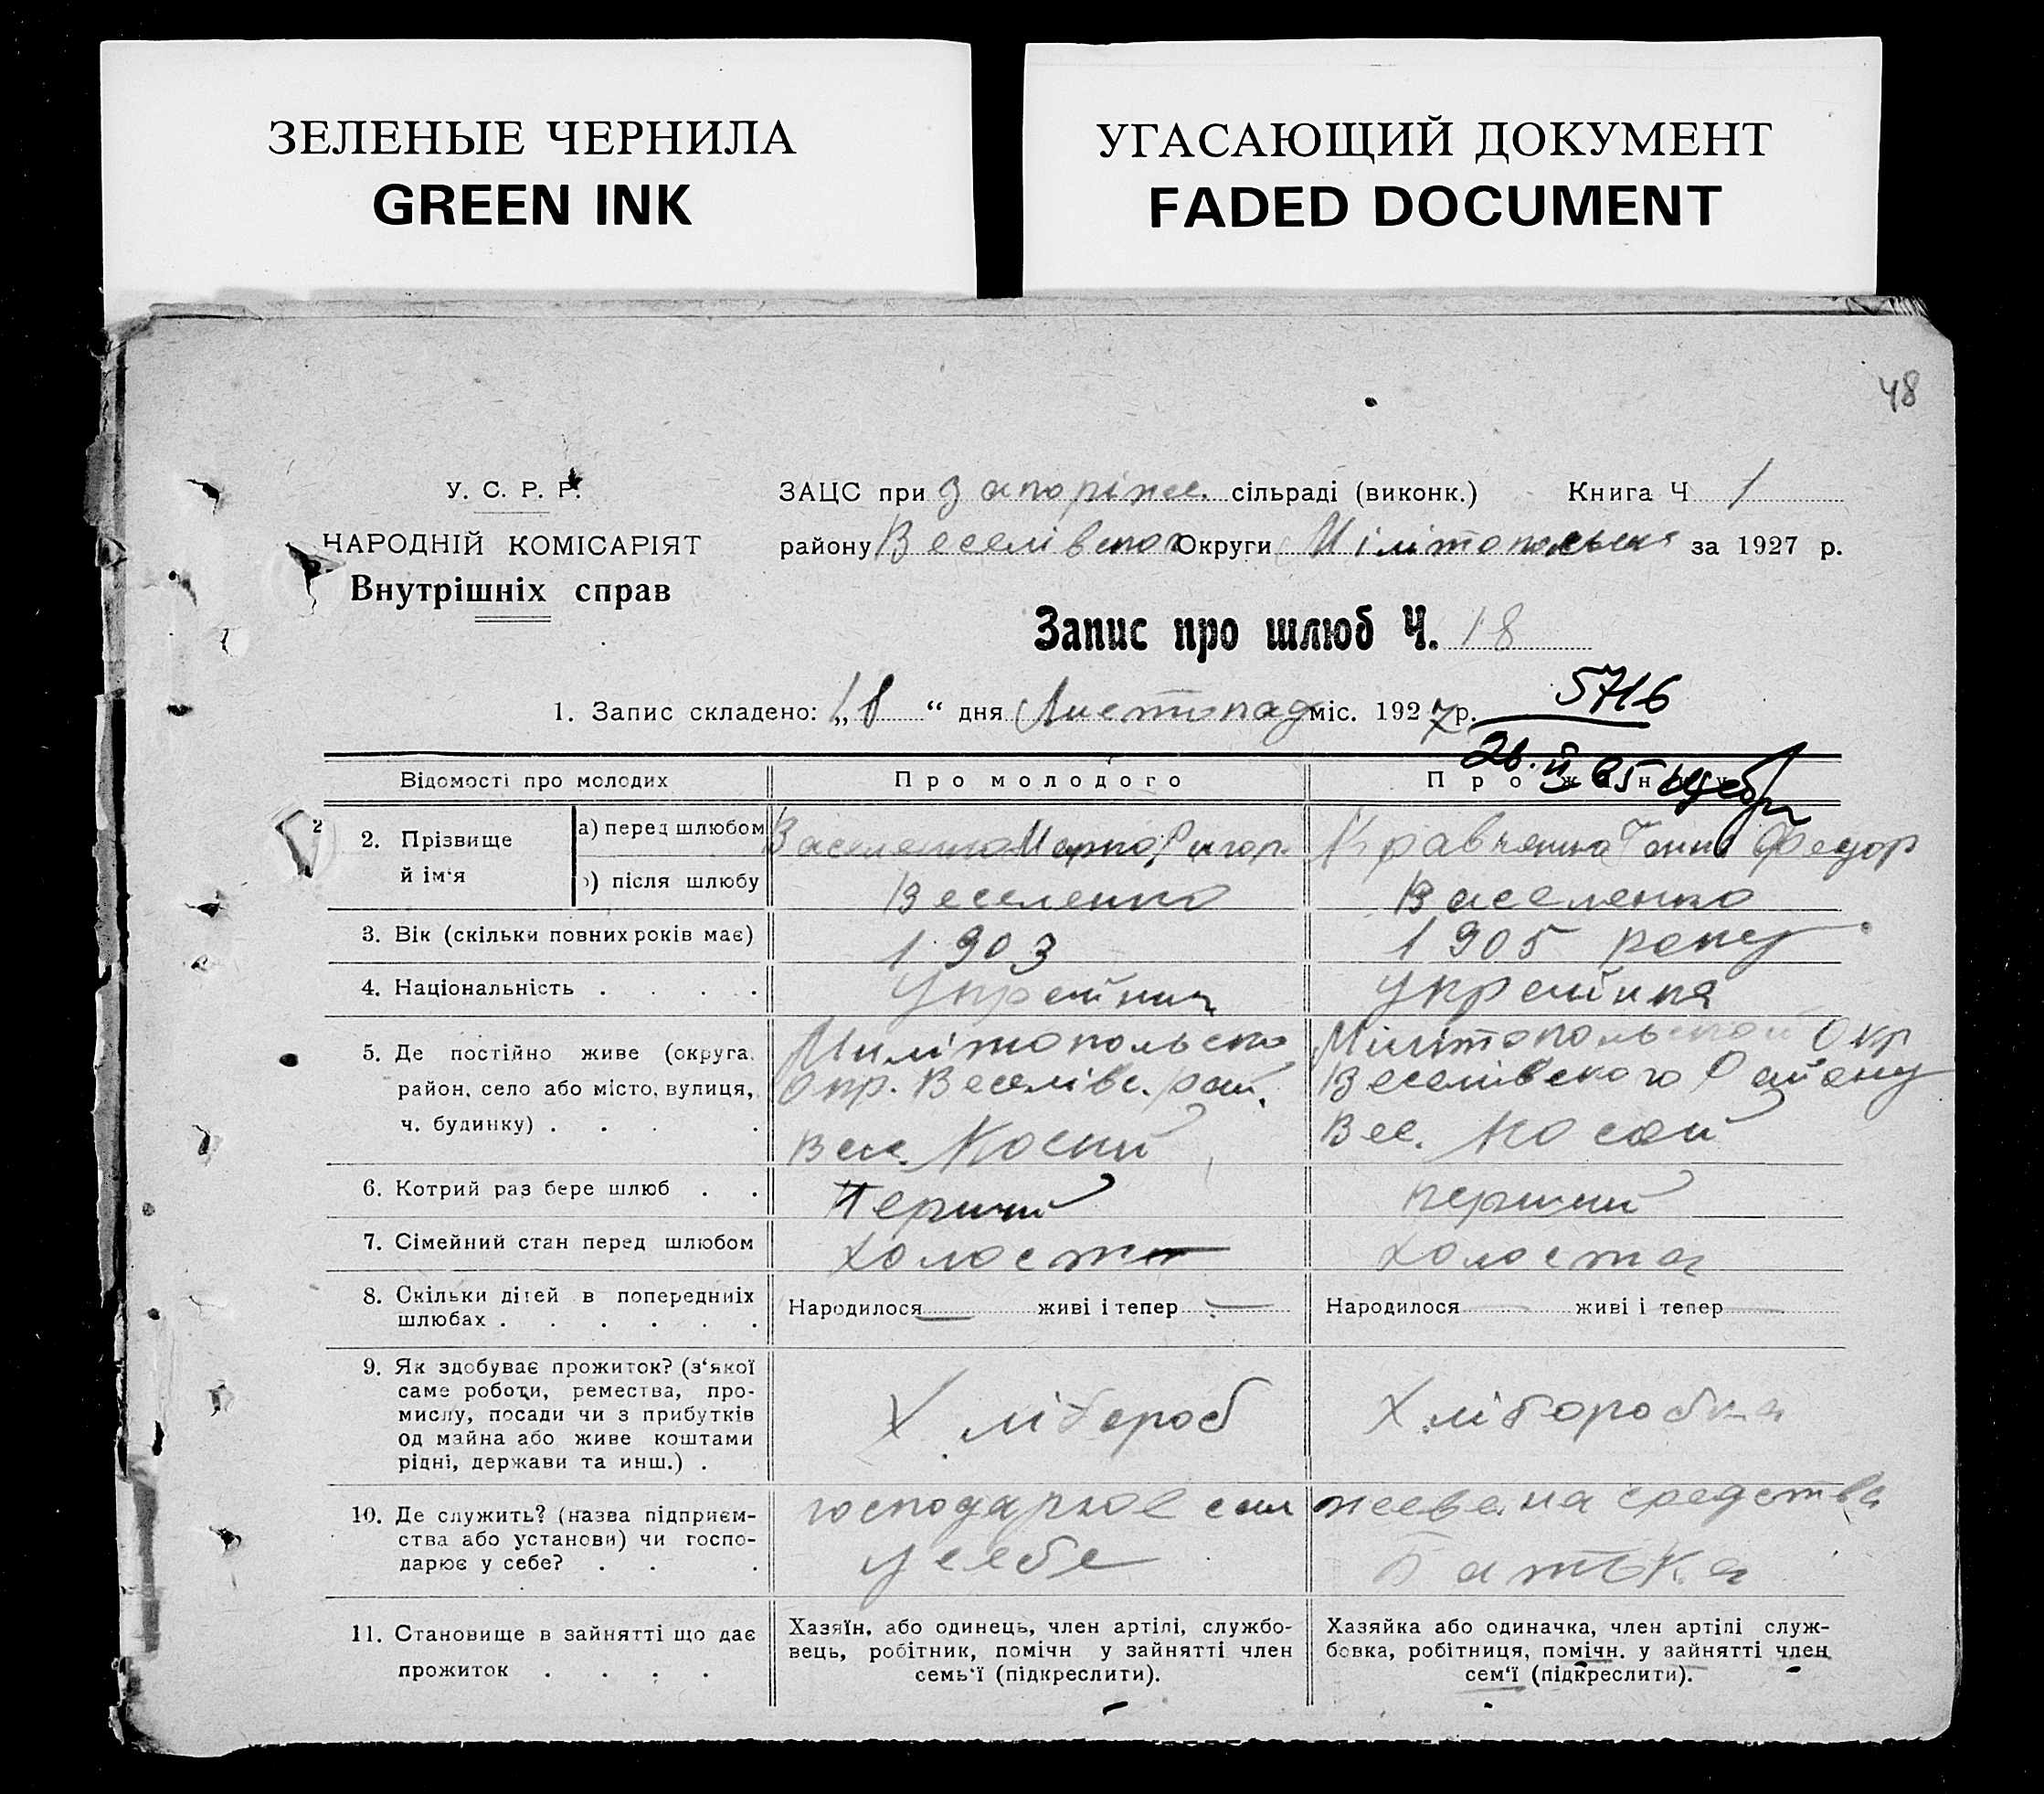 ЗЕЛЕНЫЕ ЧЕРНИЛА
GREEN INK
УГАСАЮЩИЙ ДОКУМЕНТ
FADED DOCUMENT
48
У. С. Р. Р.
НАРОДНІЙ КОМІСАРІЯТ
Внутрішніх справ
ЗАЦС при Запоріж. сільраді (виконк.) Книга Ч 1
району Веселівског Округи Мілітопольск за 1927 р.
Запис про шлюб Ч. 18
1. Запис складено: „18“ дня Листопад міс. 1927 р.
5716
Відомості про молодих Про молодого Про
2. Прізвище й ім‘я
а) перед шлюбом Василенко Марко Григор. Кравченко Ганна Федор
б) після шлюбу Веселенко Василенко
3. Вік (скільки повних років має) 1903 1905 року
4. Національність . . . . Украйнец Украйинка
5. Де постійно живе (округа, Милітопольска Мілітопольской Окр
район, село або місто, вулиця, Окр. Веселівс. рай. Веселівского Району
ч. будинку) . . . . Вел. Косий Вел. Косай
6. Котрий раз бере шлюб . . Перший перший
7. Сімейний стан перед шлюбом холост холоста
8. Скільки дітей в попередніх шлюбах . . . . . . Народилося — живі і тепер — Народилося — живі і тепер —
9. Як здобуває прожиток? (з‘якої
саме роботи, ремества, про-
мислу, посади чи з прибутків
од майна або живе коштами
рідні, держави та инш.) .
Хлібороб Хліборобка
10. Де служить? (назва підприєм-
ства або установи) чи госпо-
дарює у себе? . . .
господарює сам
у себе
живе на средства
Батька
11. Становище в зайнятті що дає
прожиток . . . .
Хазяїн, або одинець, член артілі, службо-
вець, робітник, помічн у зайнятті член
семь‘ї (підкреслити).
Хазяйка або одиначка, член артілі служ-
бовка, робітниця, помічн. у зайнятті член
сем‘ї (підкреслити).